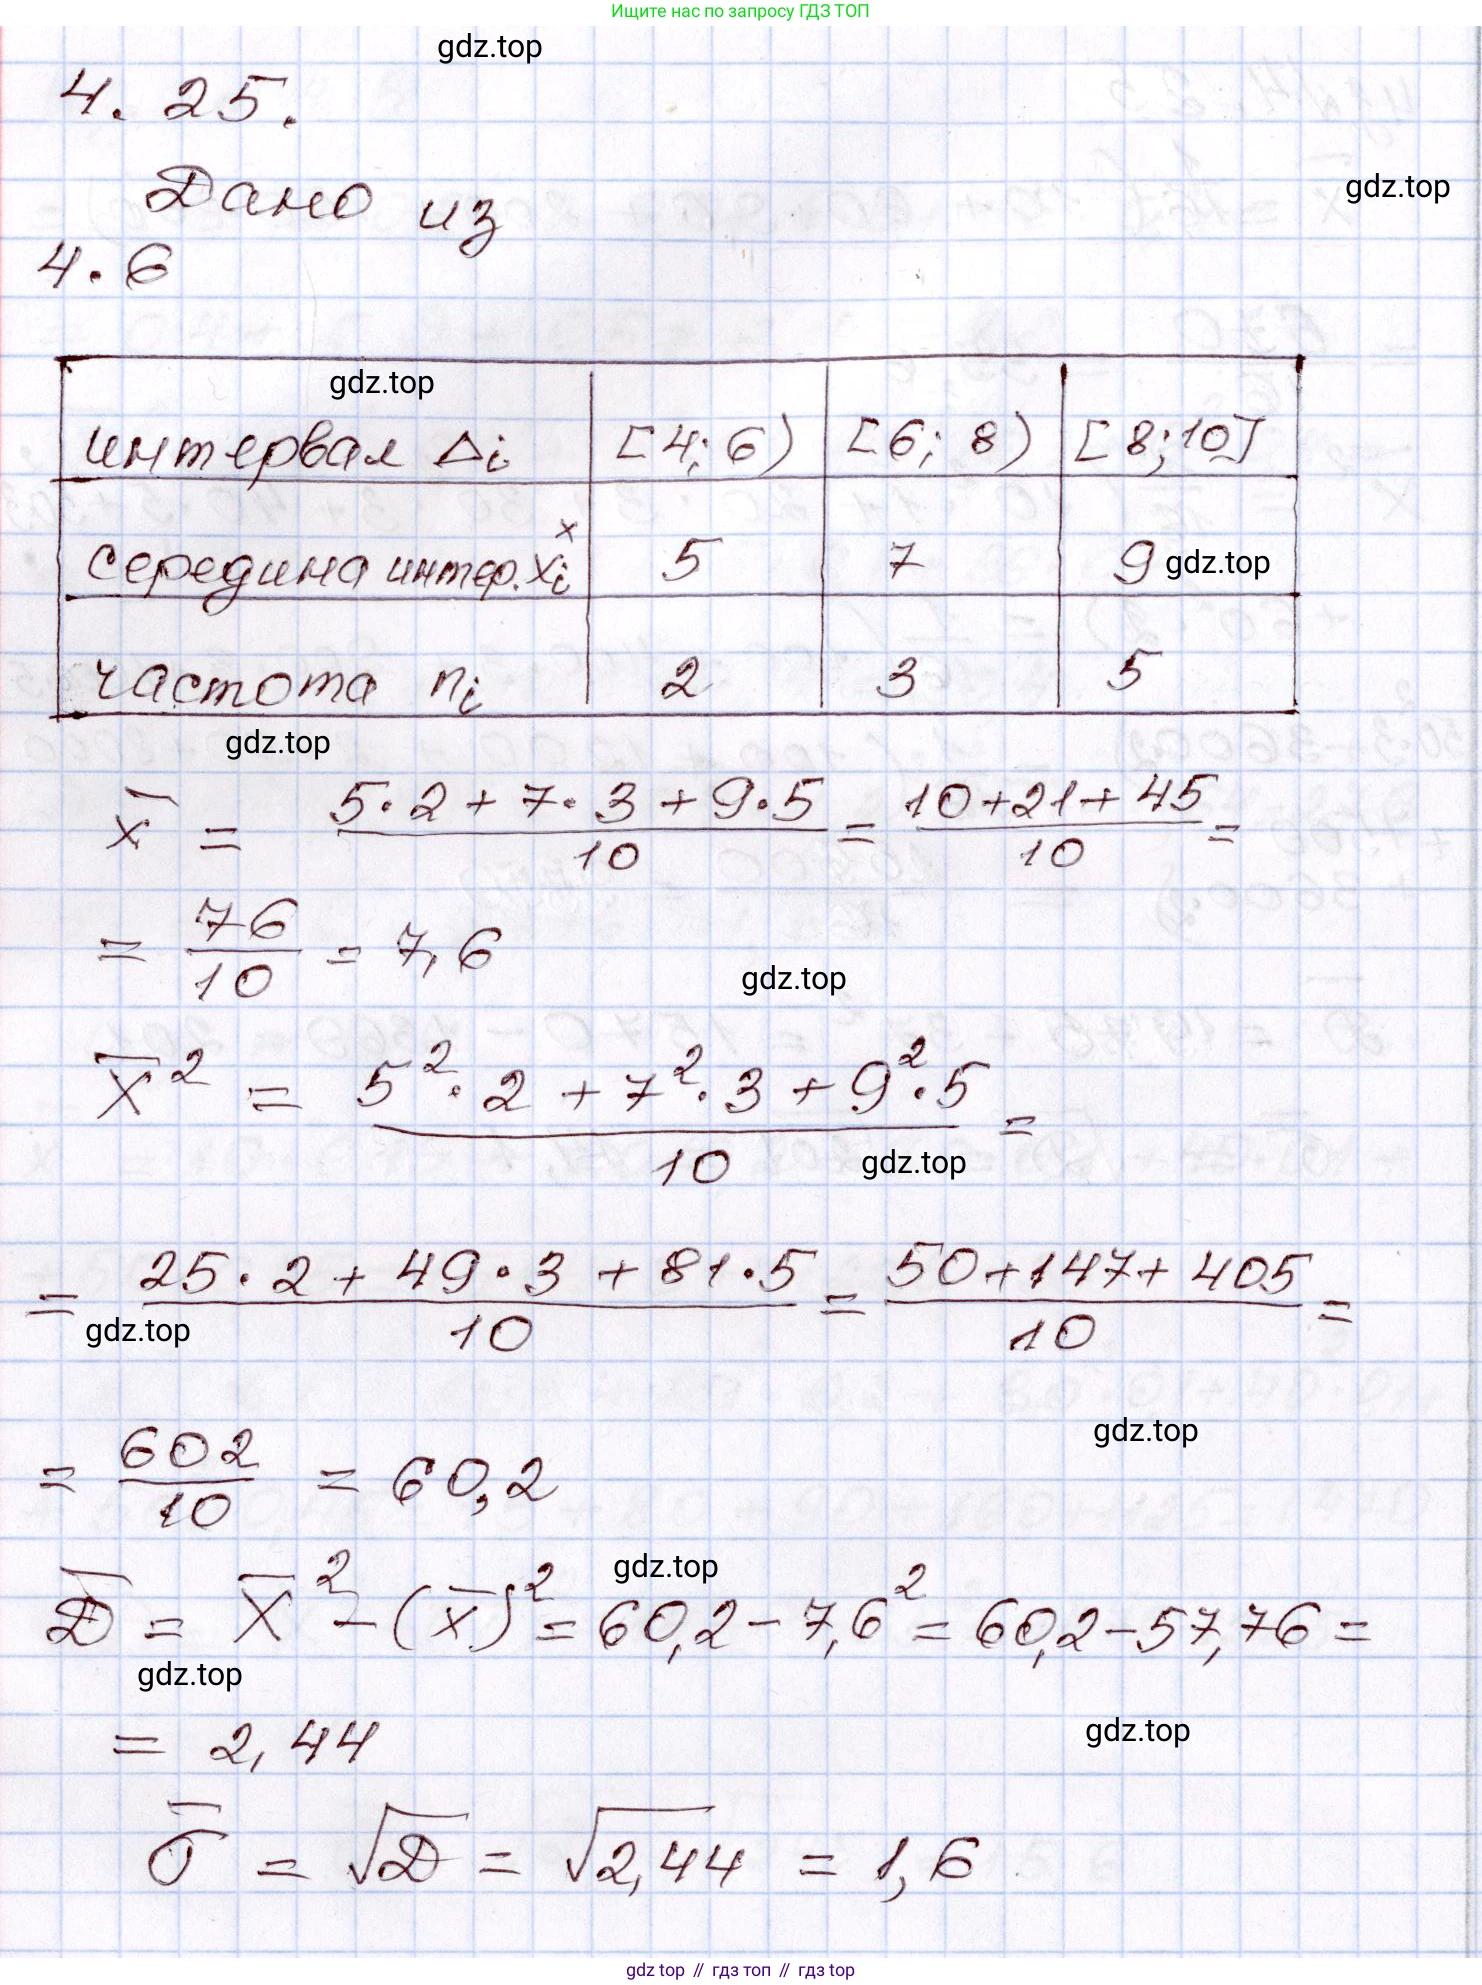 Ищите нас по запросу ГДЗ ТОП
gdz.top
4.25.
gdz.top
Дано из
4.6
gdz.top
интервал Δi [4; 6) [6; 8) [8; 10]
середина интер. xᵢˣ 5 7 9
gdz.top
частота nᵢ 2 3 5
gdz.top
x̄ = (5·2+7·3+9·5)/10 = (10+21+45)/10 =
= 76/10 = 7,6
gdz.top
X̄² = (5²·2+7²·3+9²·5)/10 =
gdz.top
= (25·2+49·3+81·5)/10 = (50+147+405)/10 =
gdz.top
gdz.top
= 602/10 = 60,2
gdz.top
D̄ = X̄² - (x̄)² = 60,2-7,6² = 60,2-57,76 =
gdz.top
gdz.top
= 2,44
σ̄ = √D = √2,44 = 1,6
gdz top // гдз топ // gdz top